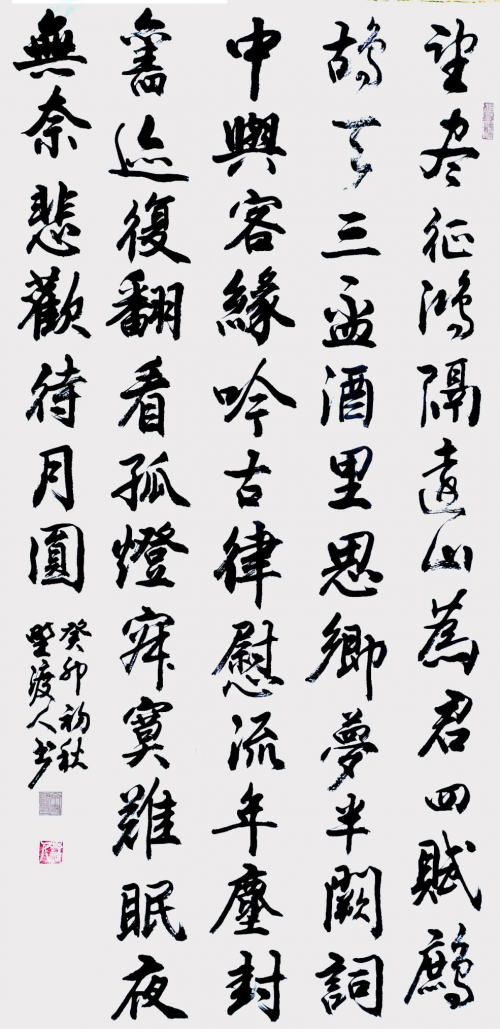 望尽征鴻隔遠山為君四賦鷓
鴣天三盃酒里思鄉夢半闕詞
中與客緣吟古律慰流年塵封
舊迹復翻看孤燈寂寞難眠夜
無奈悲歡待月圓
癸卯初秋
野渡人书